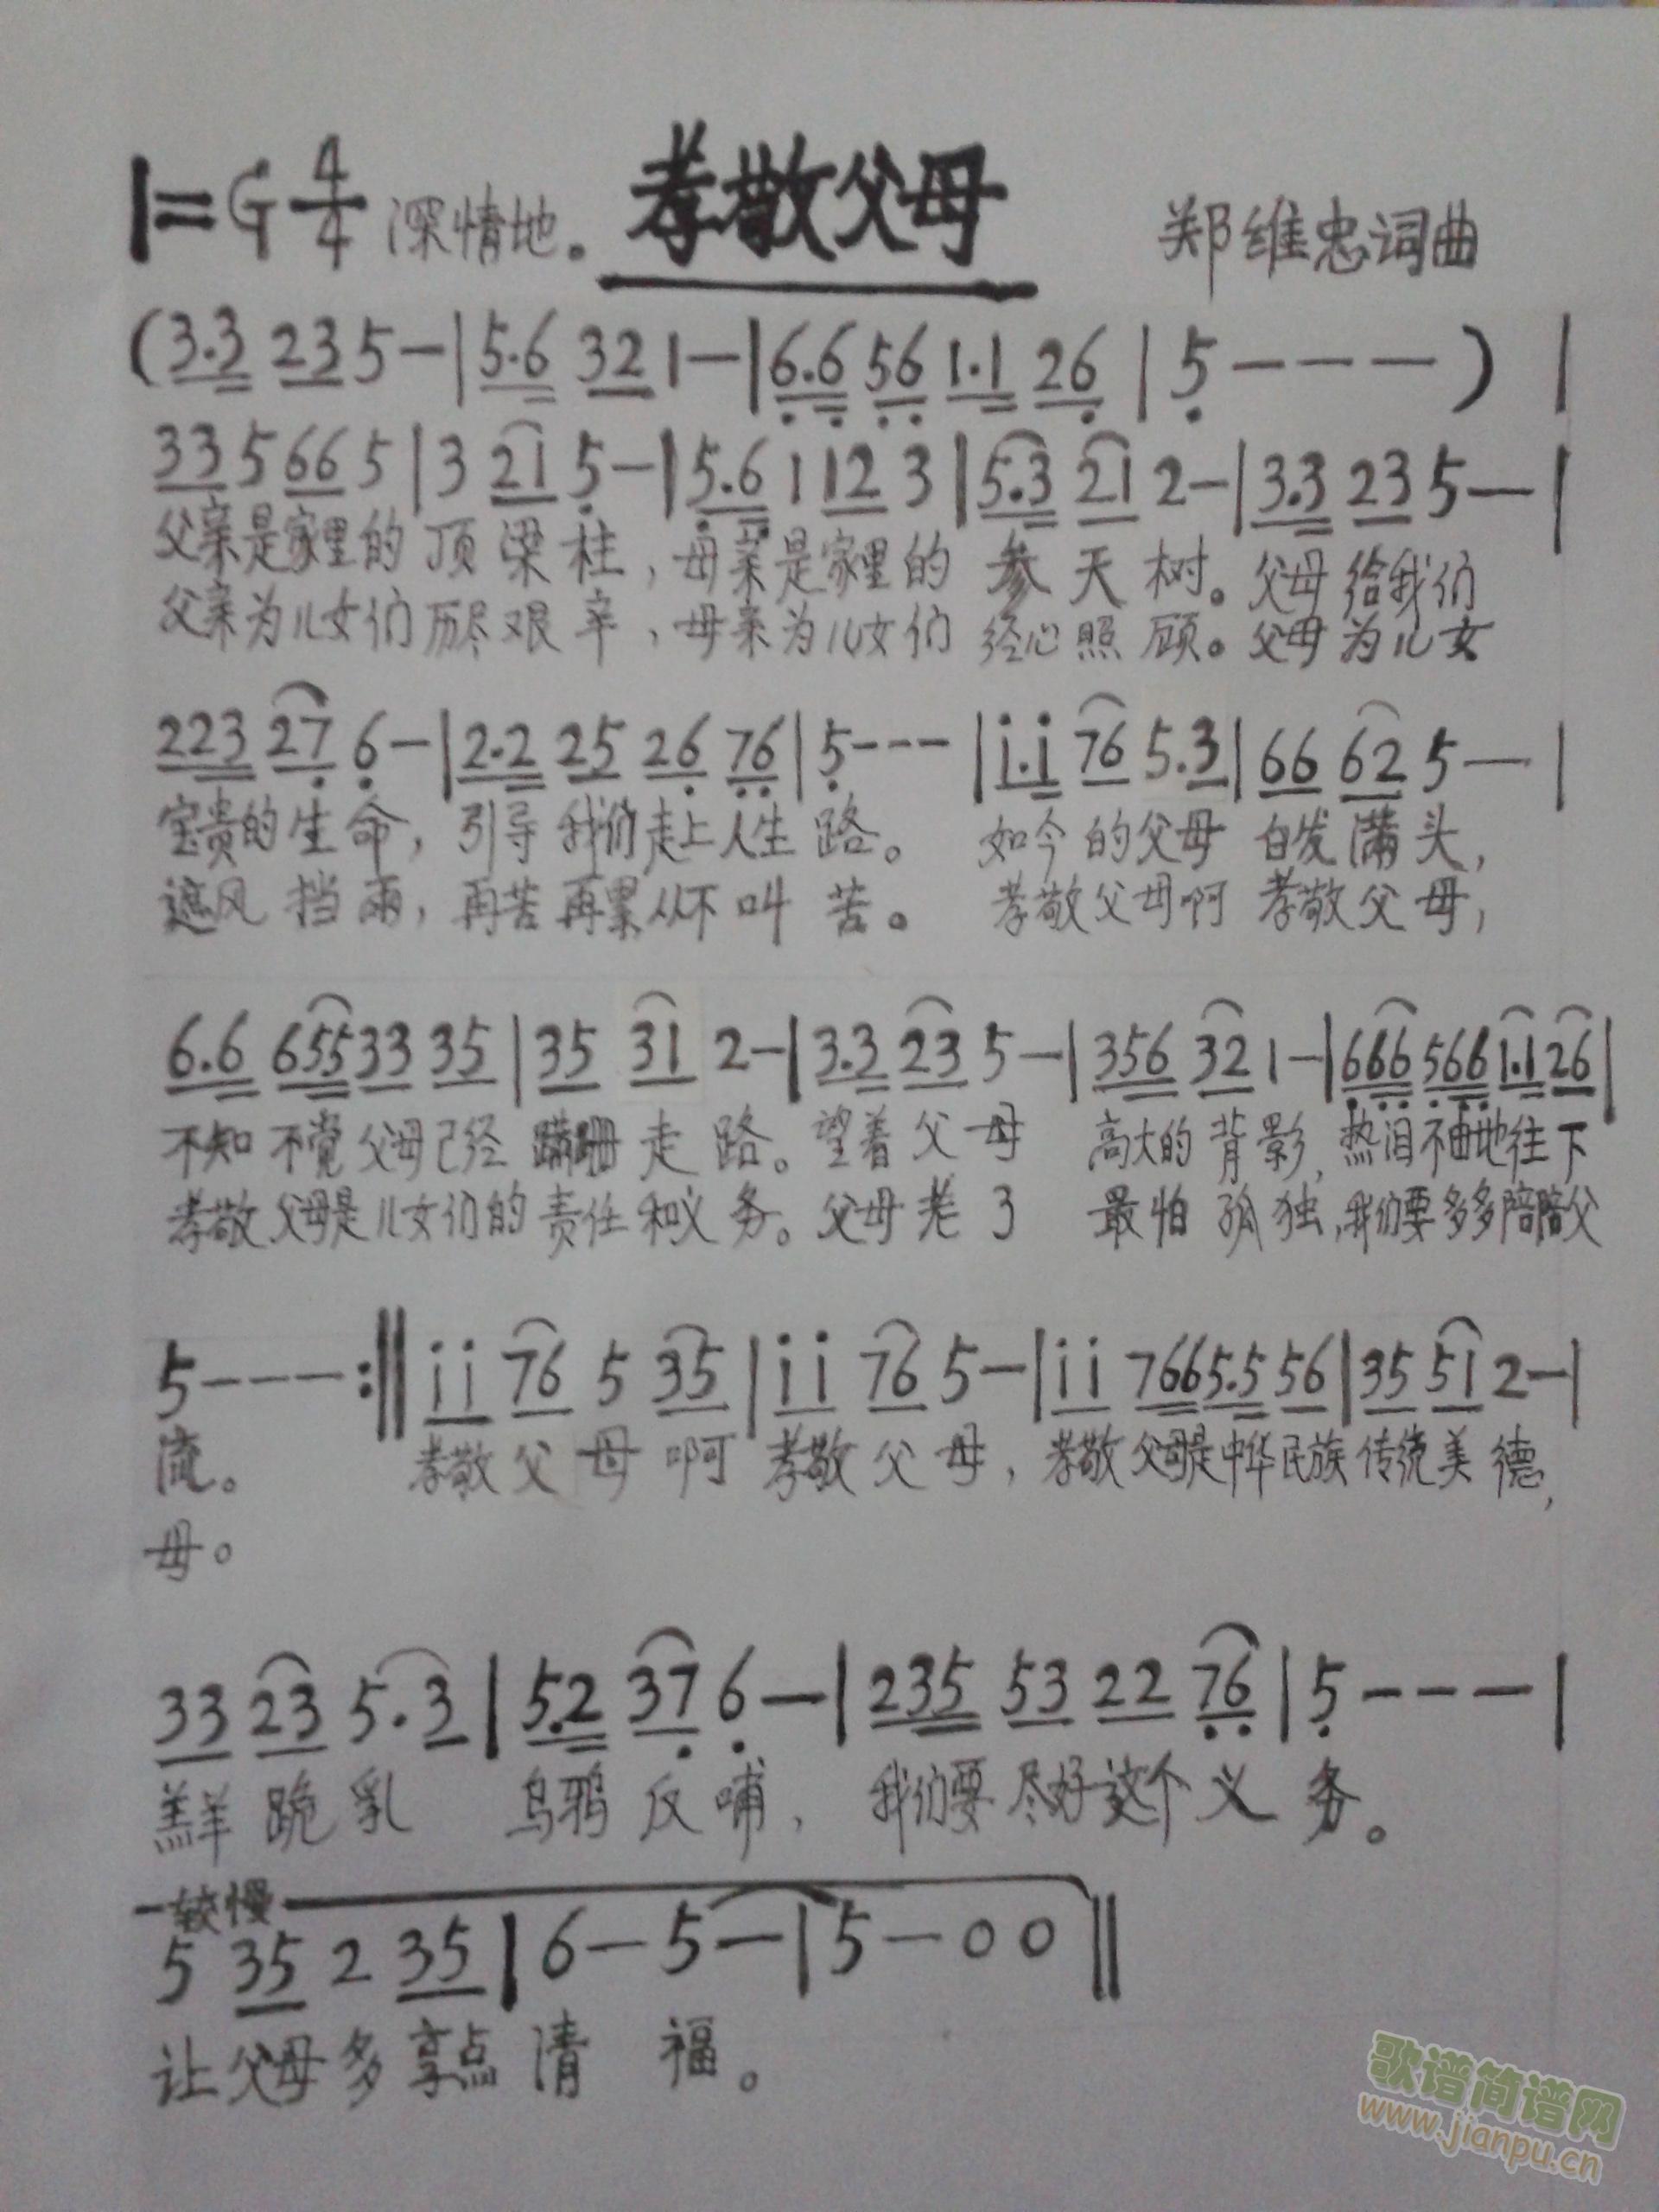 1=G 4/4 深情地。 孝敬父母 郑维忠词曲
(3.3 23 5-|5.6 32 1-|6.6 56 1.1 26|5---)|
33 5 66 5|3 21 5-|5.6 1 12 3|5.3 21 2-|3.3 23 5-|
父亲是家里的 顶梁柱，母亲是家里的 参天树。父母给我们
父亲为儿女们历尽艰辛，母亲为儿女们 经心照顾。父母为儿女
223 27 6-|2.2 25 26 76|5---|i.i 76 5.3|66 62 5-|
宝贵的生命，引导我们走上人生路。 如今的父母 白发满头，
遮风挡雨，再苦再累从不叫苦。 孝敬父母啊 孝敬父母，
6.6 655 33 35|35 31 2-|3.3 23 5-|356 32 1-|666 566 1.1 26|
不知不觉父母已经 蹒跚走路。望着父母 高大的背影，热泪不由地往下
孝敬父母是儿女们的责任和义务。父母老了 最怕孤独，我们要多多陪陪父
5---:‖ii 76 5 35|ii 76 5-|ii 766 5.5 56|35 51 2-|
流。 孝敬父母啊 孝敬父母，孝敬父母是中华民族传统美德，
母。
33 23 5.3|5.2 37 6-|235 53 22 76|5---|
羔羊跪乳 乌鸦反哺，我们要尽好这个义务。
较慢
5 35 2 35|6-5-|5-00‖
让父母多享点清福。
歌谱简谱网
www.jianpu.cn